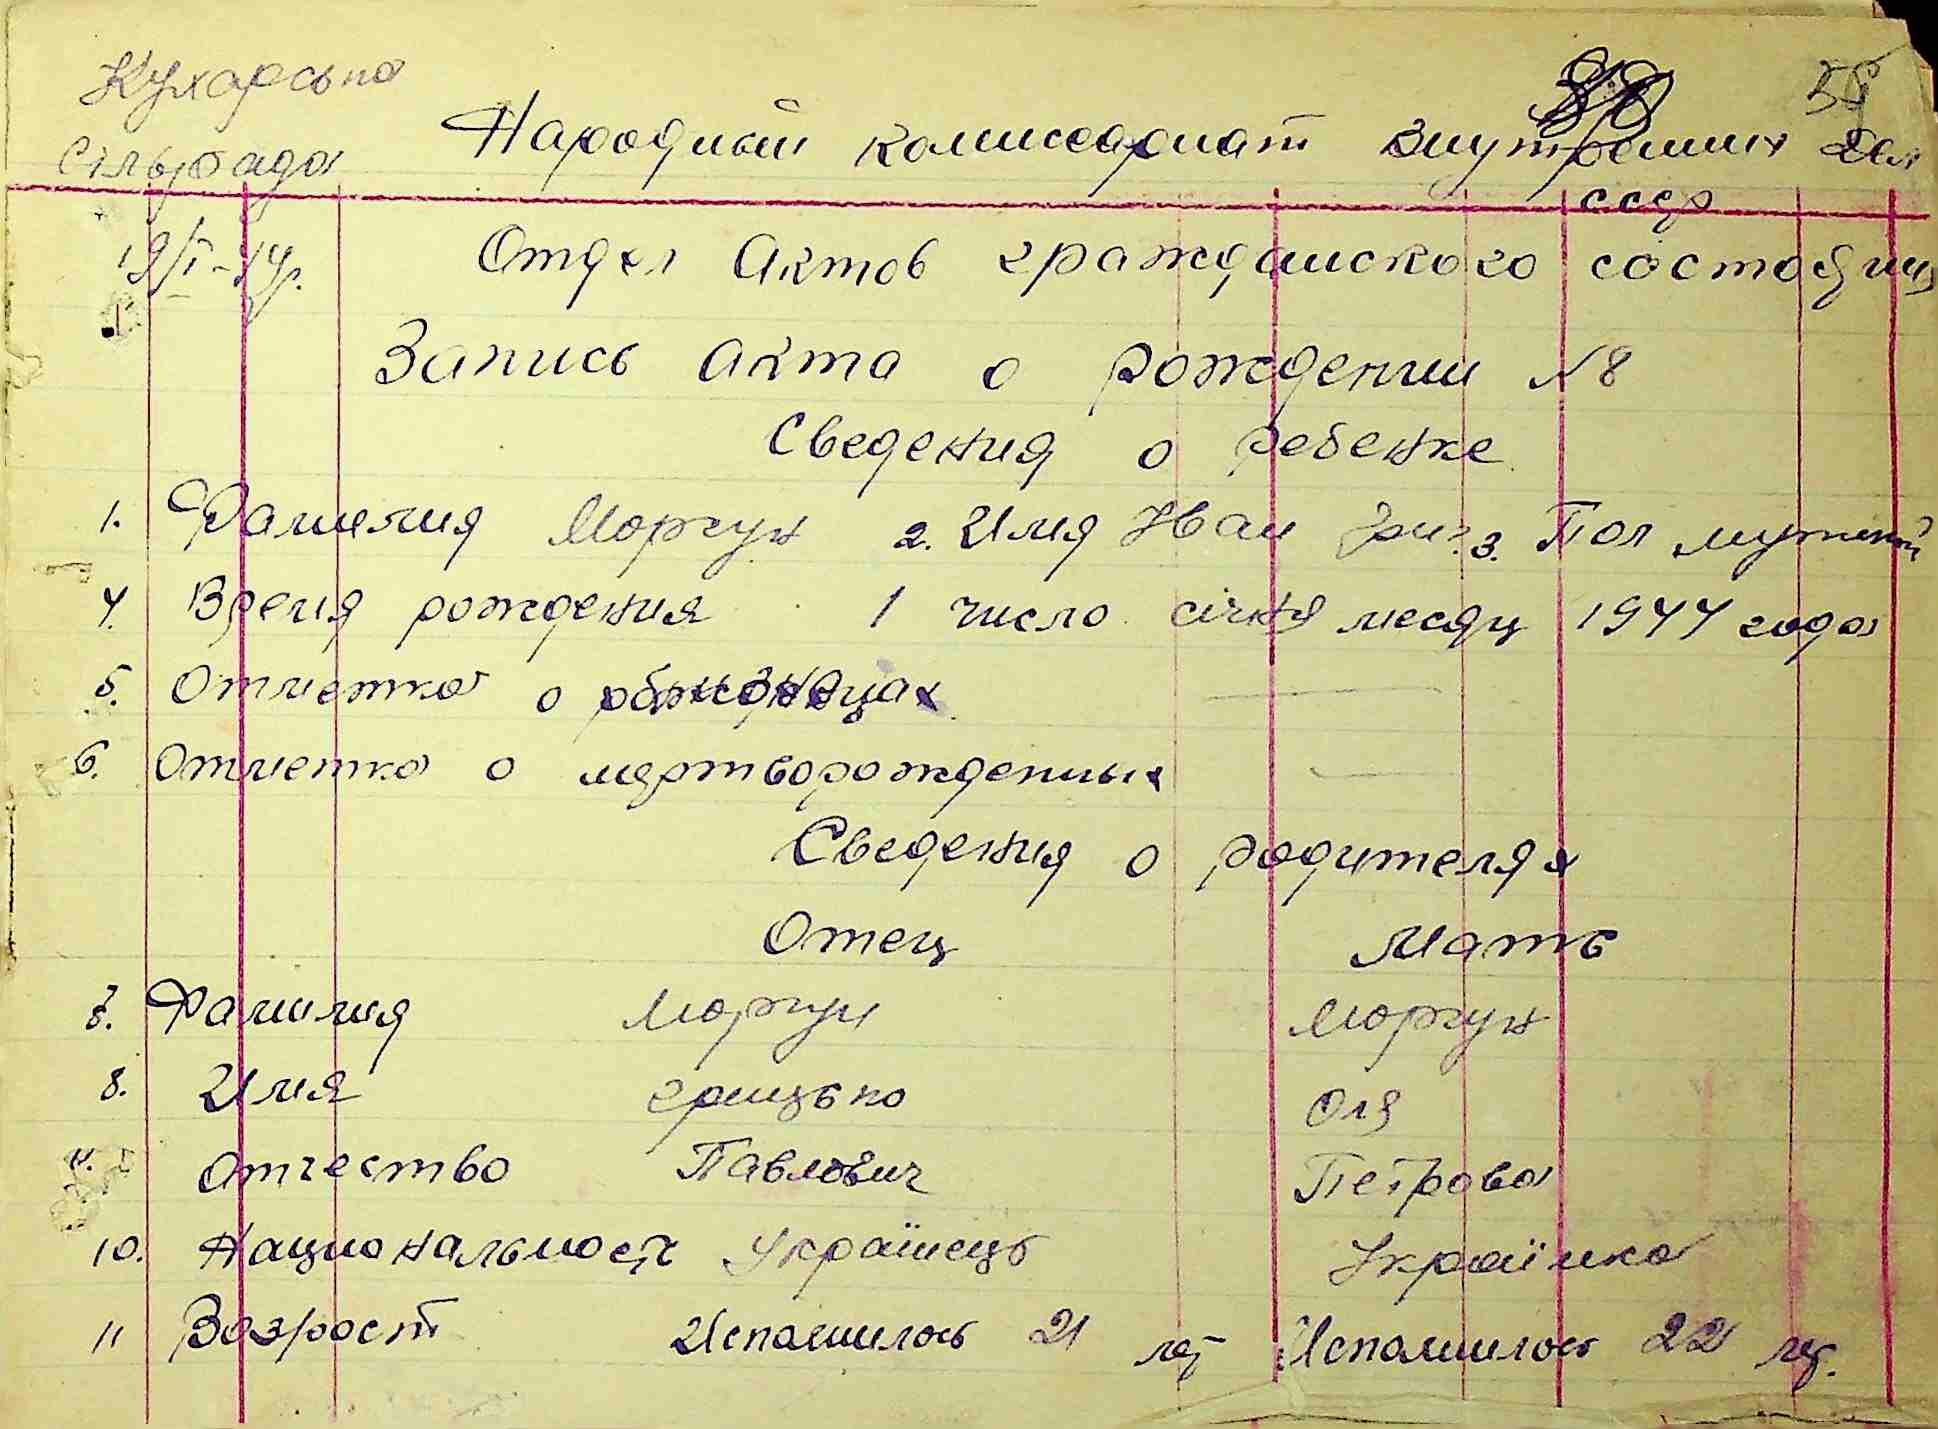 Кухарська
сільрада
Народный комиссариат внутренних дел
СССР
19/I-44р.
Отдел актов гражданского состояния
Запись акта о рождении №8
Сведения о ребенке
1. Фамилия Моргун 2. Имя Иван Григ. 3. Пол мужской
4. Время рождения 1 число січня месяц 1944 года
5. Отметка о близнецах —
6. Отметка о мертворожденных —
Сведения о родителях
Отец Мать
7. Фамилия Моргун Моргун
8. Имя Грицько Оля
Отчество Павлович Петрова
10. Национальность Українець Українка
11 Возраст Исполнилось 21 лет Исполнилось 22 лет.